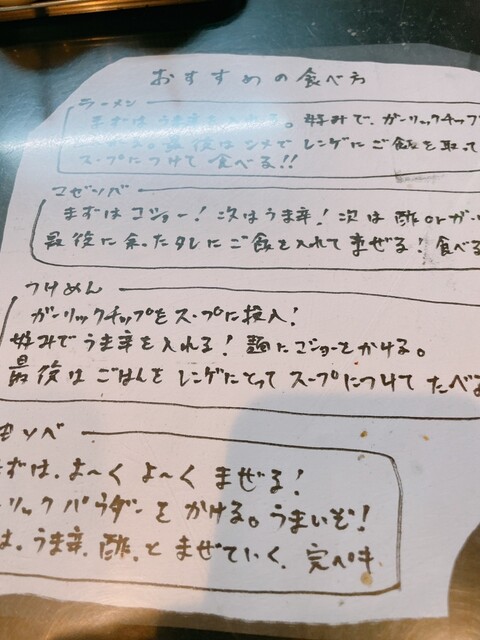 おすすめの食べ方
ラーメン
まずはうま辛を入れる。好みで、ガーリックチップ
最後はシメでレンゲにご飯を取って
スープにつけて食べる!!
マゼソバ
まずはコショー!次はうま辛!次は酢orガー
最後に余ったタレにご飯を入れてまぜる!食べる
つけめん
ガーリックチップをスープに投入!
好みでうま辛を入れる!麺にコショーをかける。
最後はごはんをレンゲにとってスープにつけてたべる
ソバ
ずは、よ〜くよ〜くまぜる!
ーリックパウダーをかける。うまいぞ!
は、うま辛、酢、とまぜていく、完ペキ